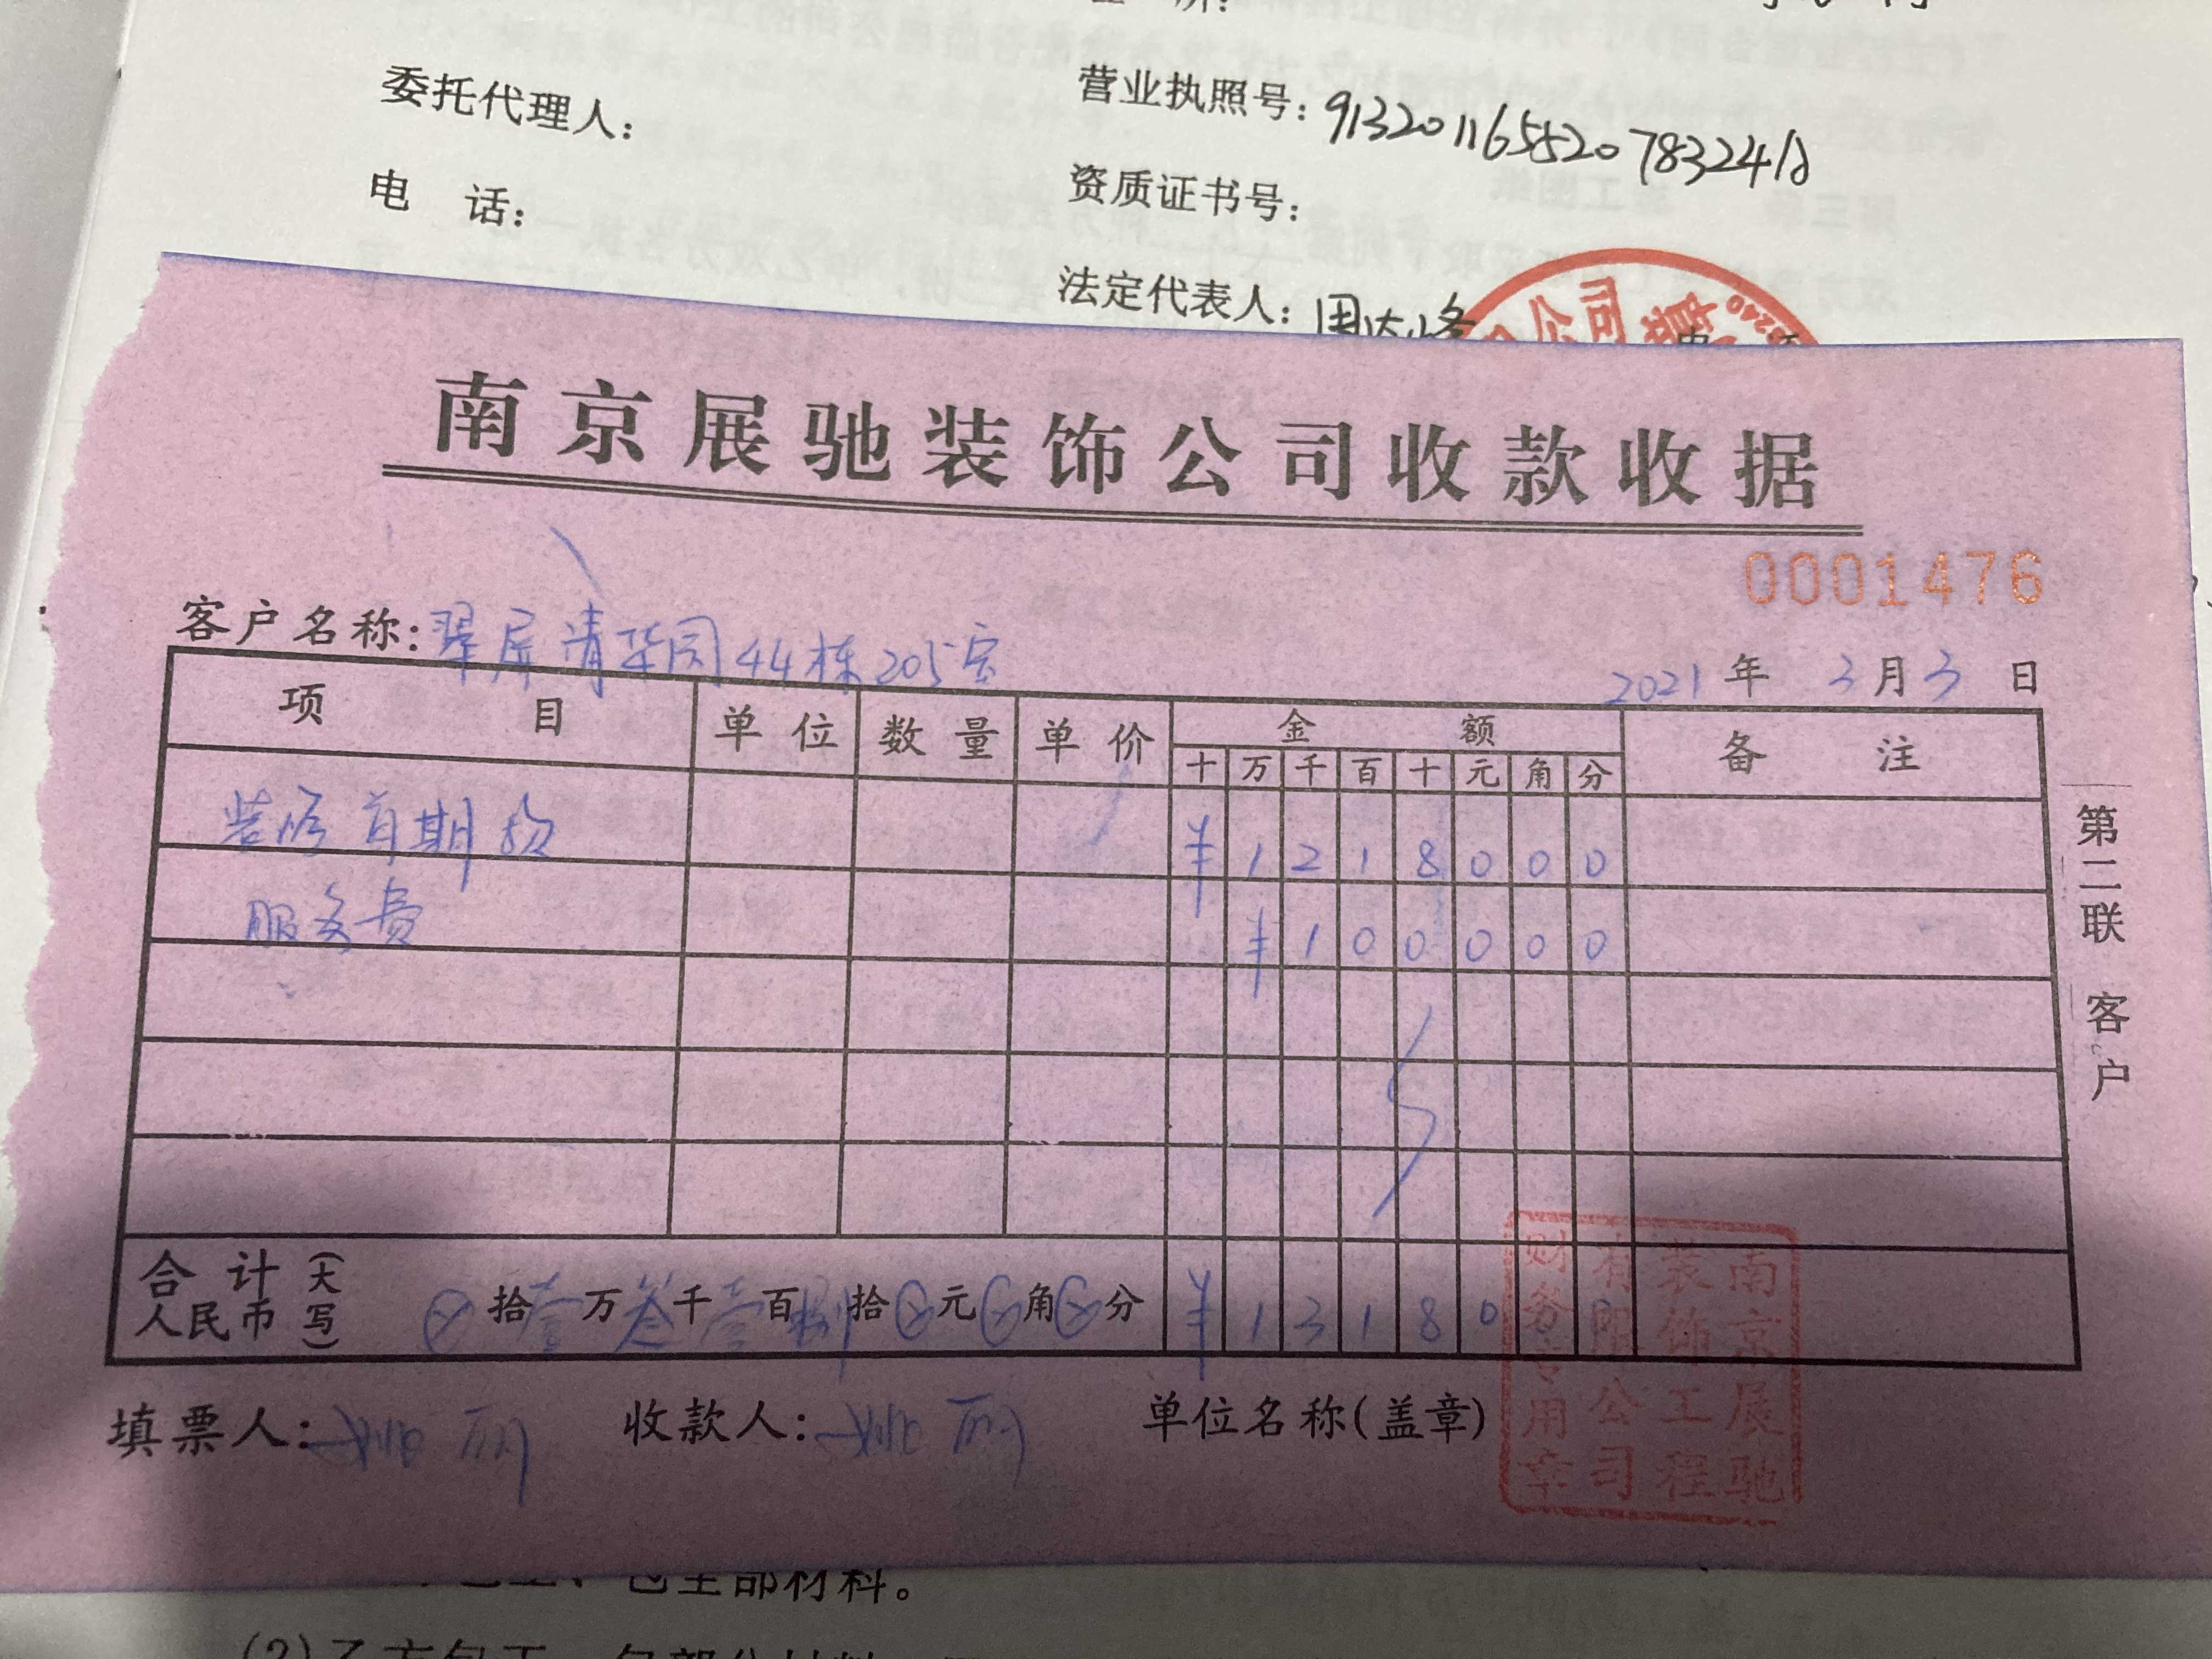 委托代理人：
营业执照号：913201165552078324
电 话：
资质证书号：
法定代表人：
公司 章
南京展驰装饰公司收款收据
0001476
客户名称：翠屏清华园44栋205室
2021年3月3日
项目 单位 数量 单价 金额 备注
十 万 千 百 十 元 角 分
装修首期款 ¥1218000
服务费 ¥100000
合计人民币（大写） ⊗拾壹万叁千壹百捌拾⊗元⊗角⊗分 ¥1318000
第二联 客户
填票人：姚丽 收款人：姚丽 单位名称（盖章）
南京展驰装饰工程有限公司财务专用章
包全部材料。
(2)乙方包工、包部分材料